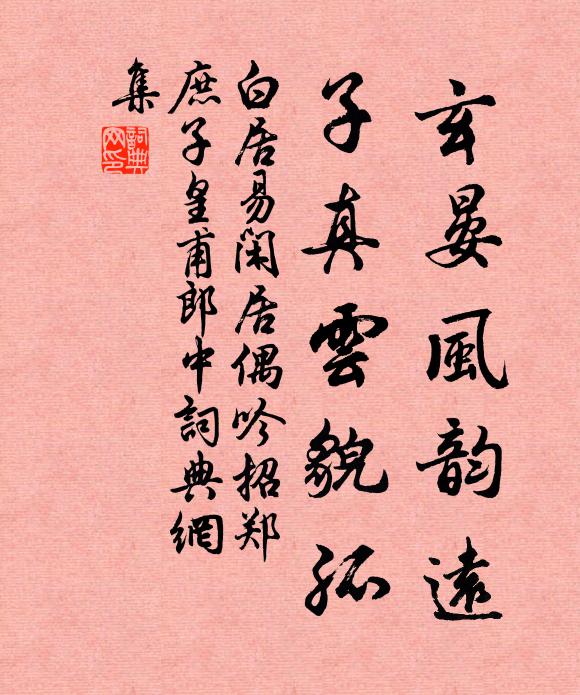 玄晏風韵遠
子真雲貌孤
白居易閑居偶吟招郑
庶子皇甫郎中詞典網
集
詞典網印